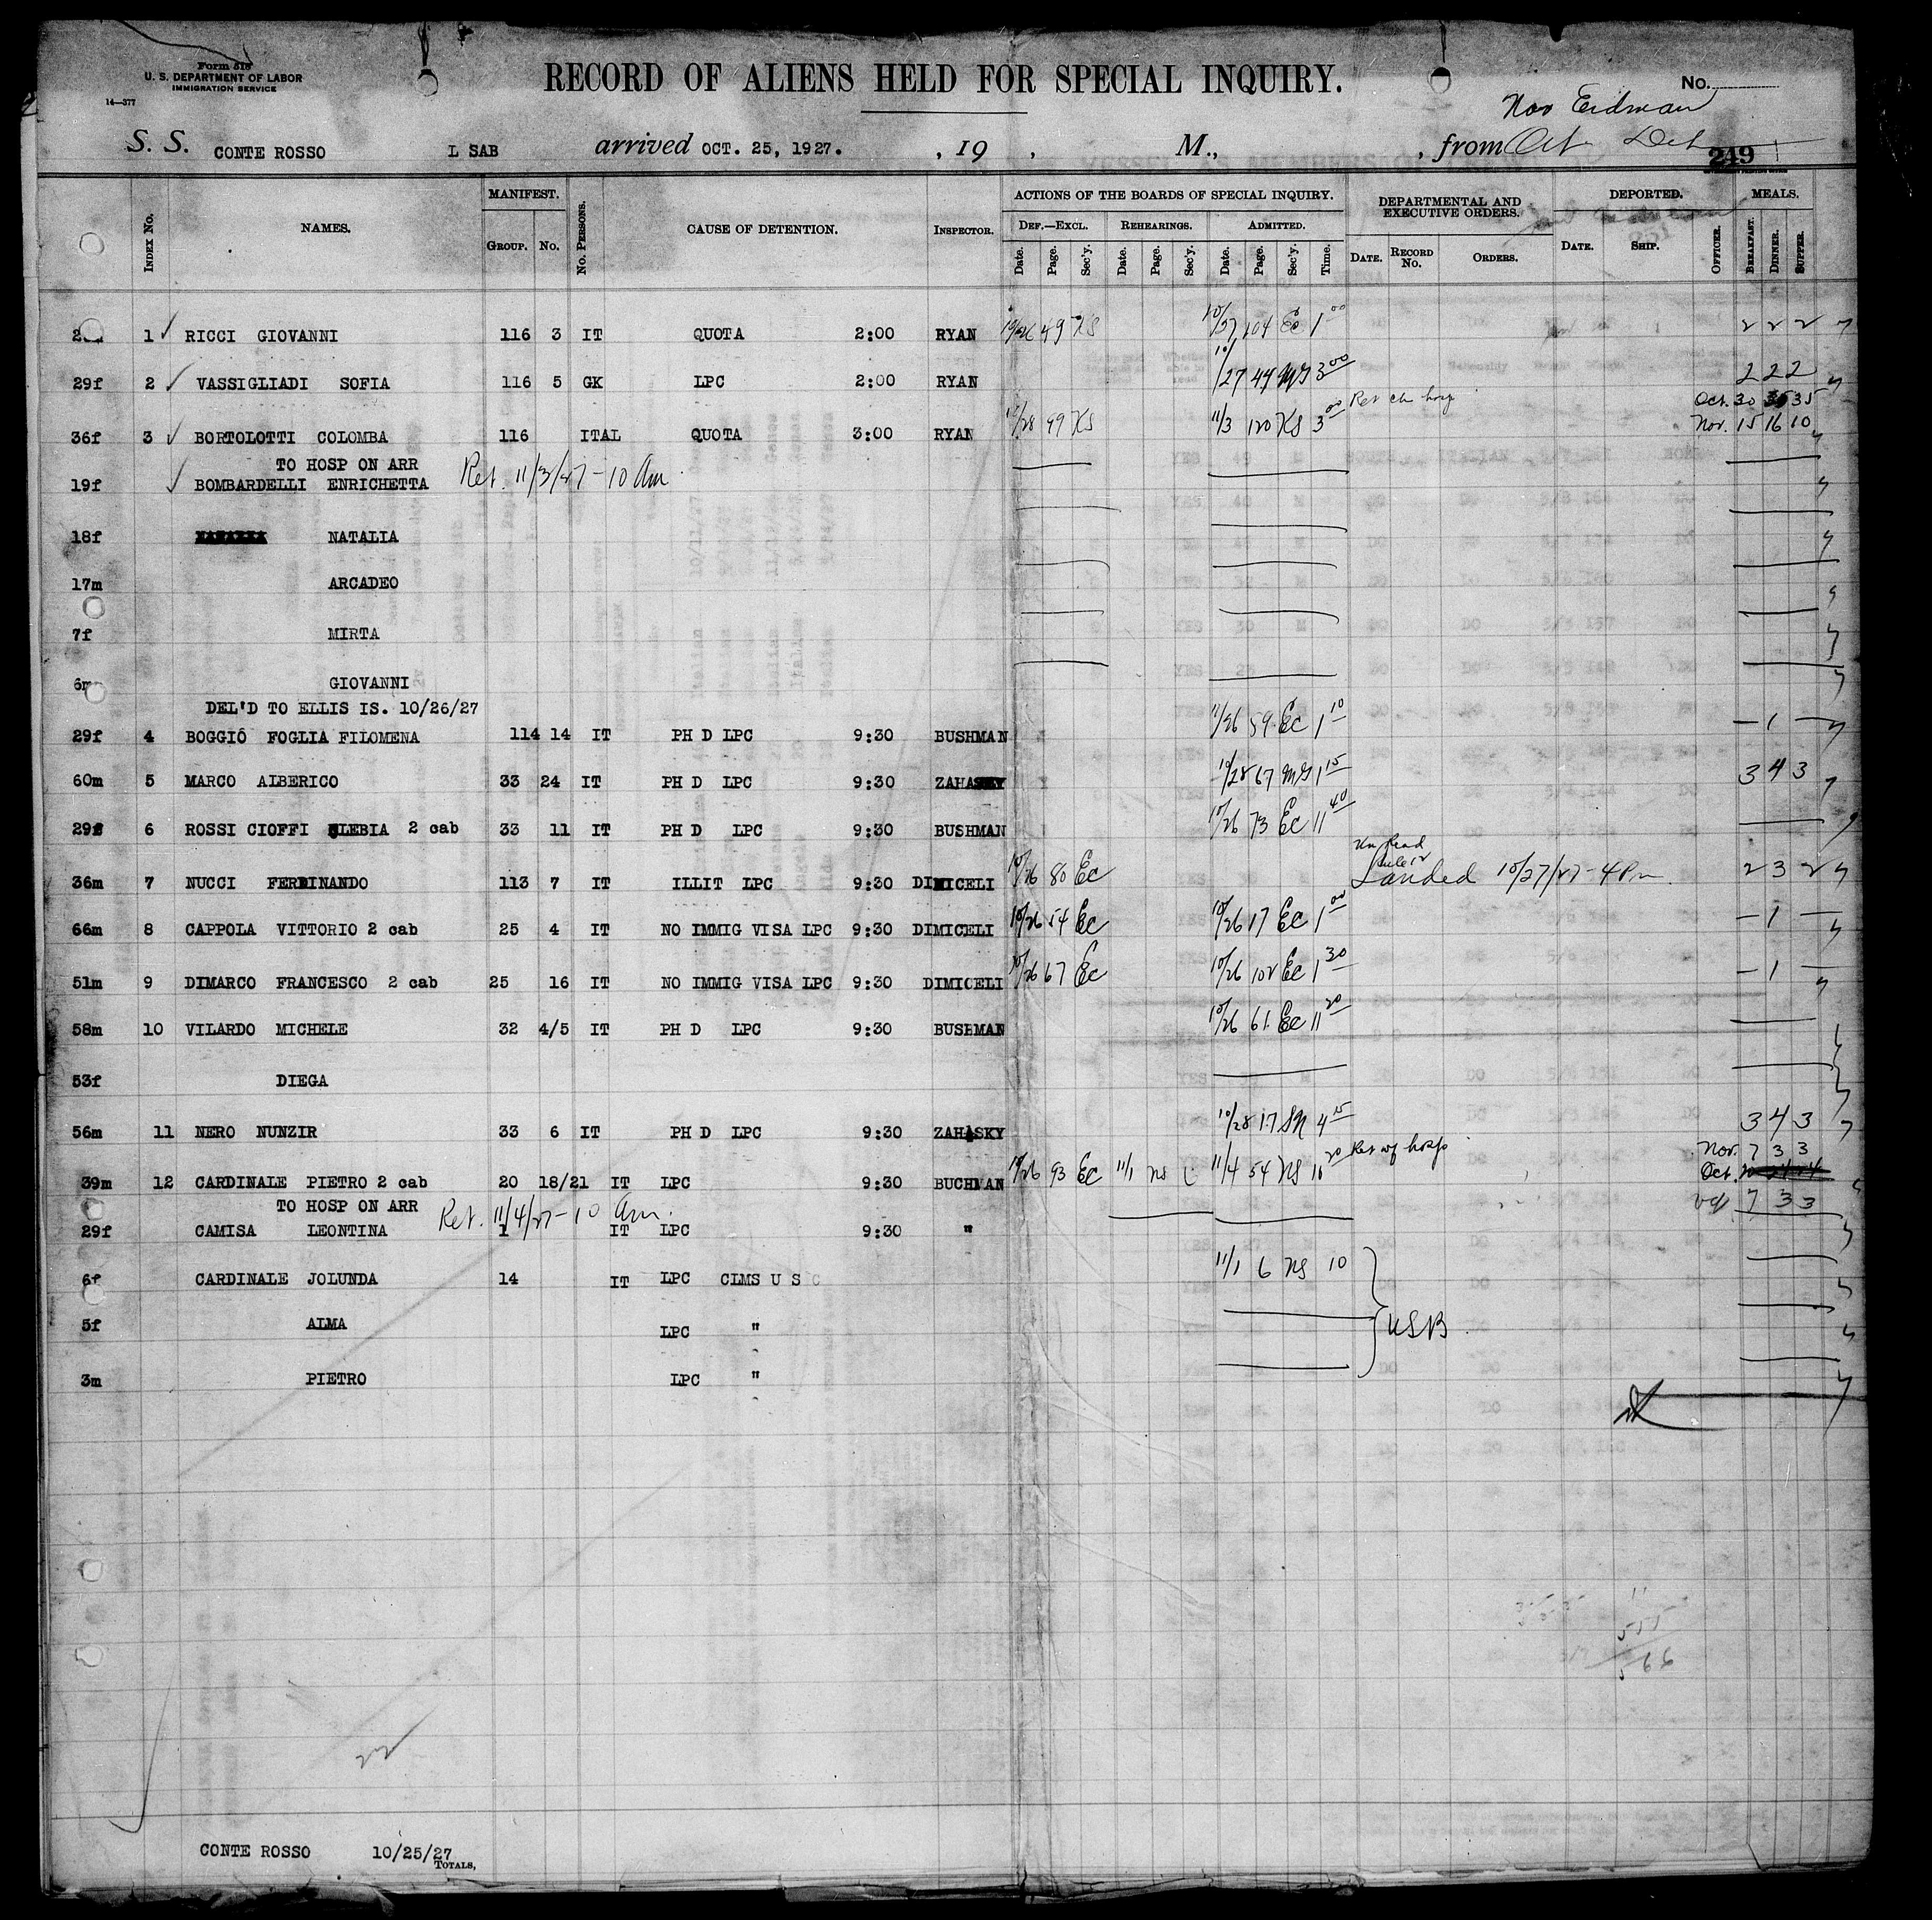 Form 518
U. S. DEPARTMENT OF LABOR
IMMIGRATION SERVICE
14—377
RECORD OF ALIENS HELD FOR SPECIAL INQUIRY.
No.
Nov Erdman
S. S. CONTE ROSSO L SAB arrived OCT. 25, 1927. , 19 , M., , from Oct Det
249
INDEX No. NAMES. MANIFEST. GROUP. No. No. PERSONS. CAUSE OF DETENTION. INSPECTOR. ACTIONS OF THE BOARDS OF SPECIAL INQUIRY. DEF.—EXCL. Date. Page. Sec'y. REHEARINGS. Date. Page. Sec'y. ADMITTED. Date. Page. Sec'y. Time. DEPARTMENTAL AND EXECUTIVE ORDERS. DATE. RECORD No. ORDERS. DEPORTED. DATE. SHIP. OFFICER. MEALS. BREAKFAST. DINNER. SUPPER.
1 RICCI GIOVANNI 116 3 IT QUOTA 2:00 RYAN 10/26 49 KS 10/27 104 Ec 1 00 2 2 2
29f 2 VASSIGLIADI SOFIA 116 5 GK LPC 2:00 RYAN 10/27 44 MG 3 00 2 2 2
Oct. 30 35 35
36f 3 BORTOLOTTI COLOMBA 116 ITAL QUOTA 3:00 RYAN 10/28 99 KS 11/3 120 KS 3 00 Ret ch hosp Nov. 15 16 10
TO HOSP ON ARR Ret. 11/3/27 - 10 Am.
19f BOMBARDELLI ENRICHETTA
18f NATALIA
17m ARCADEO
7f MIRTA
6m GIOVANNI
DEL'D TO ELLIS IS. 10/26/27
29f 4 BOGGIO FOGLIA FILOMENA 114 14 IT PH D LPC 9:30 BUSHMAN 11/26 59 Ec 1 10 — 1 —
60m 5 MARCO ALBERICO 33 24 IT PH D LPC 9:30 ZAHASKY 10/28 67 MG 1 15 3 4 3
29f 6 ROSSI CIOFFI CLEBIA 2 cab 33 11 IT PH D LPC 9:30 BUSHMAN 10/26 73 Ec 11 40
36m 7 NUCCI FERDINANDO 113 7 IT ILLIT LPC 9:30 DIMICELI 10/26 80 Ec Landed 10/27/27 - 4 Pm 2 3 2
66m 8 CAPPOLA VITTORIO 2 cab 25 4 IT NO IMMIG VISA LPC 9:30 DIMICELI 10/26 54 Ec 10/26 17 Ec 1 00 — 1 —
51m 9 DIMARCO FRANCESCO 2 cab 25 16 IT NO IMMIG VISA LPC 9:30 DIMICELI 10/26 67 Ec 10/26 102 Ec 1 30 — 1 —
58m 10 VILARDO MICHELE 32 4/5 IT PH D LPC 9:30 BUSHMAN 10/26 61 Ec 11 20
53f DIEGA
56m 11 NERO NUNZIR 33 6 IT PH D LPC 9:30 ZAHASKY 10/28 17 SN 4 15 3 4 3
Nov. 7 3 3
39m 12 CARDINALE PIETRO 2 cab 20 18/21 IT 9:30 BUCHMAN 10/26 93 Ec 11/1 NS 11/4 54 NS 10 20 Ret of hosp Oct.
TO HOSP ON ARR Ret. 11/4/27 - 10 Am. 7 3 3
29f CAMISA LEONTINA 1 IT LPC 9:30 "
6f CARDINALE JOLUNDA 14 IT LPC CLMS U S C 11/1 6 NS 10
5f ALMA LPC " USB
3m PIETRO LPC "
11
555
566
22
CONTE ROSSO 10/25/27
TOTALS,